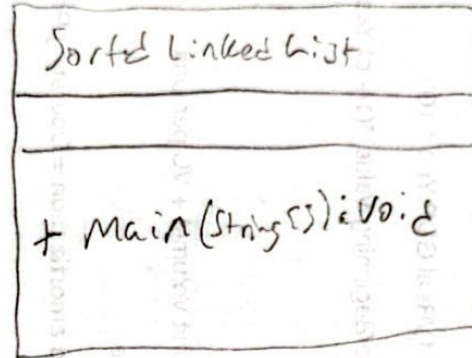 Sorted Linked List
+ Main(String[]): void